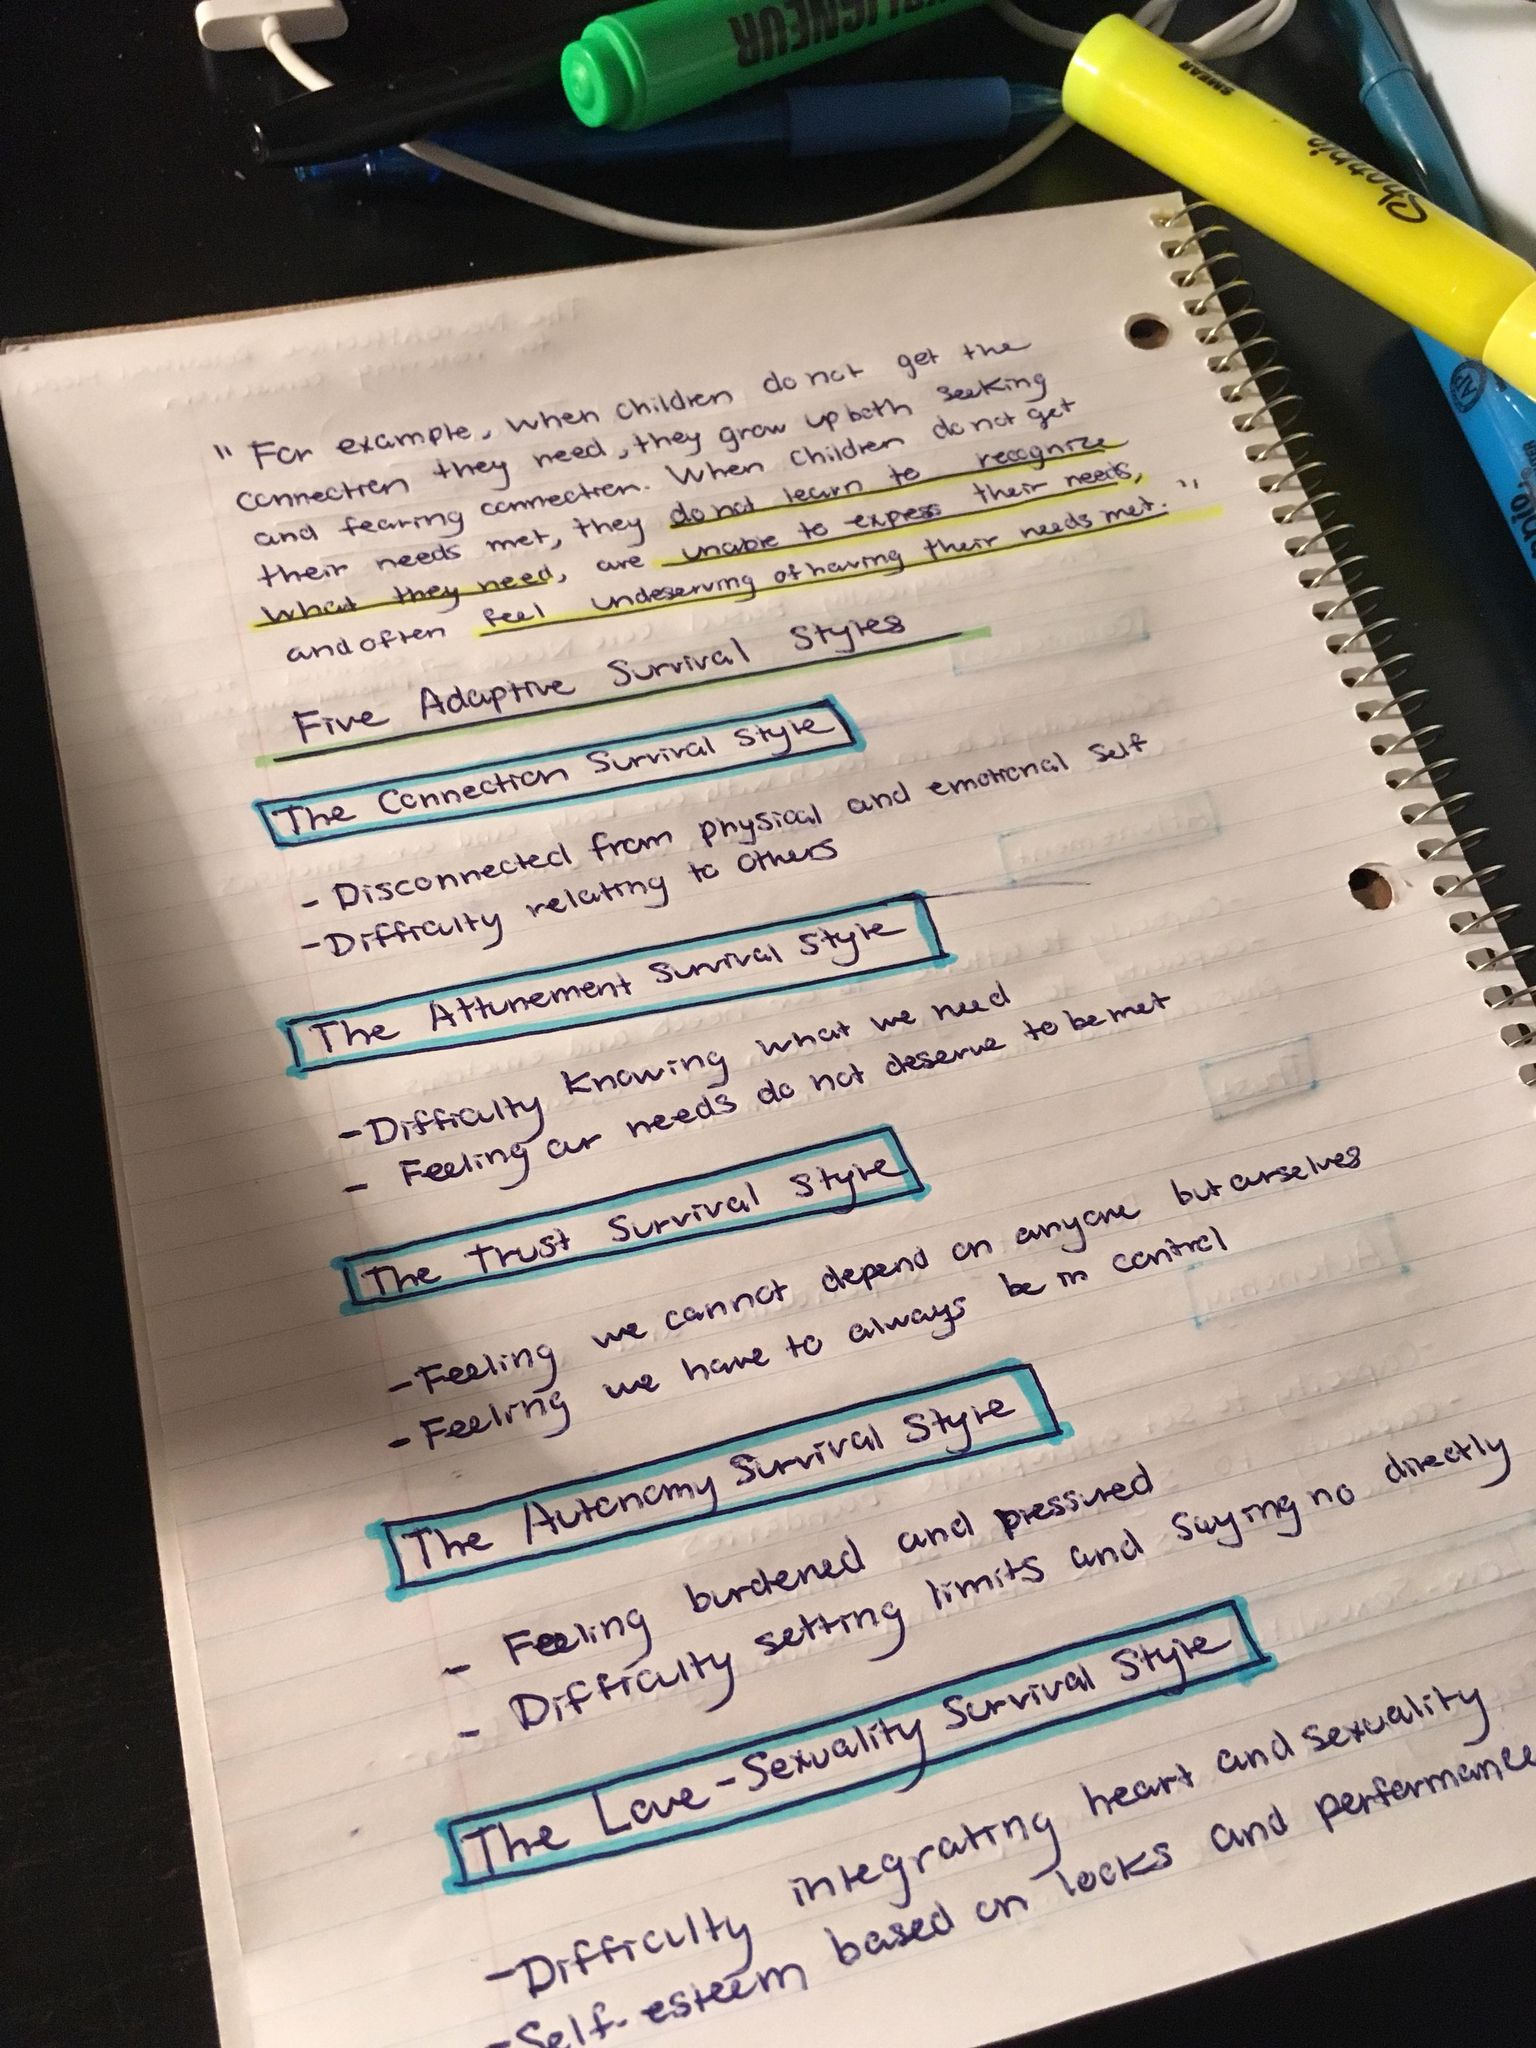 LIGNEUR
SHARP
Sharpie
" For example, when children do not get the
connection they need, they grow up both seeking
and fearing connection. When children do not get
their needs met, they do not learn to recognize
what they need, are unable to express their needs,
and often feel undeserving of having their needs met. "
Five Adaptive Survival Styles
The Connection Survival Style
- Disconnected from physical and emotional self
- Difficulty relating to others
The Attunement Survival Style
- Difficulty knowing what we need
- Feeling our needs do not deserve to be met
The Trust Survival Style
- Feeling we cannot depend on anyone but ourselves
- Feeling we have to always be in control
The Autonomy Survival Style
- Feeling burdened and pressured
- Difficulty setting limits and saying no directly
The Love-Sexuality Survival Style
- Difficulty integrating heart and sexuality
- Self-esteem based on looks and performance